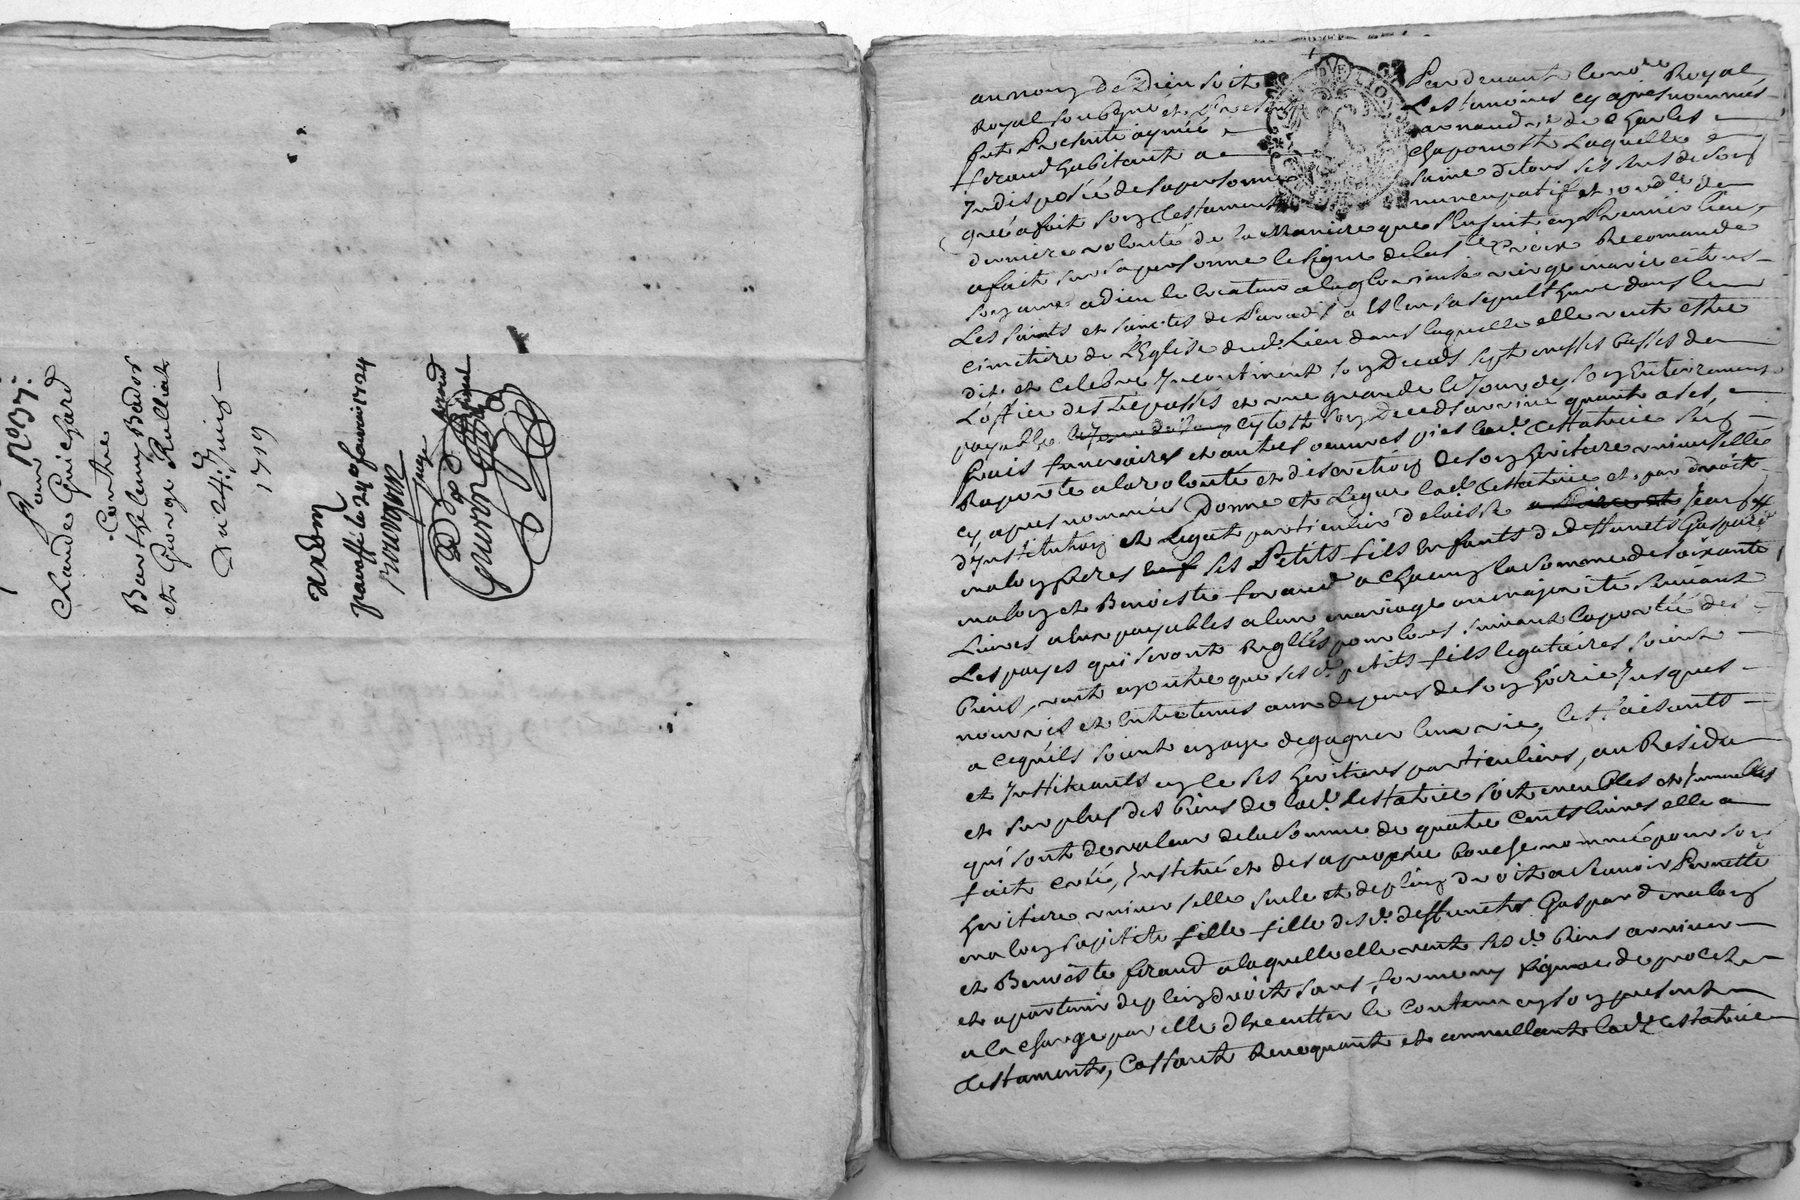 Pour No 37.
Claude Guichard
Contre
Barthelemy Bador
et George Rulliat
Du 24e Juin
1719
paraffé le 24e 1724
Juge
au nom de Dieu soit Pardevant le nore Royal
Royal soubsigné et Presents Les temoins cy apres nommés
fut Presente aymée arnaud ve de Charles
feraud habitante a Chaponost Laquelle
Indisposée de sa personne saine de tous ses sens de son
gré a fait son testament nuncupatif et ordre de
derniere volonté de la Maniere que s'Ensuit en Premier lieu
a fait sur sa personne le signe de la Ste Croix Recomande
son ame a dieu le Createur a la glorieuse vierge marie et tous
Les saints et sainctes de Paradis a Eslu sa sepulthure dans le
cimetiere de l'Eglise dud. Lieu dans laquelle elle veut estre
dit et Celebré Incontinent son Decéds sept messes basses de
L'office des trépassés et une grande le Jour de son Enterrement
payable cytost son Decéds arrivé quant a ses
frais funeraires et autres oeuvres pies lad. testatrice s'en
Raporte a la volonté et discretion de son heritiere universelle
cy apres nommée, Donne et Legue lad. testatrice et par droit
d'Institution et Legat particulier delaisse a Jean
maloz freres ses Petits fils Enfants de deffunets Gaspard
maloz et Benoiste feraud a Chacun la somme de soixante
Livres a eux payables a leur mariage ou majorité suivant
Les payes qui seront Reglées pour lors suivant la portée des
biens, veut en outre que ses d. petits fils legataires soient
nourris et Entretenus aux depens de son hoirie Jusques
a ce qu'ils soient en aage de gagner leur vie, les faisants
et Instituants en ce ses heritiers particuliers, au Residu
et surplus des biens de lad. testatrice soit meubles et Immeubles
qui sont de valeur de la somme de quatre cents livres elle a
fait créé, Institué et de sa propre bouche nommée pour son
heritiere universelle seule et de plein droit a scavoir Pernette
maloz sa petite fille fille des d. deffuncts Gaspard maloz
et Benoiste feraud a laquelle elle veut ses d. biens arriver
et apartenir de plein droit sans forme ny figure de procez
a la charge par elle d'Executter le contenu en son present
testament, Cassant Revoquant et annullant lad. testatrice